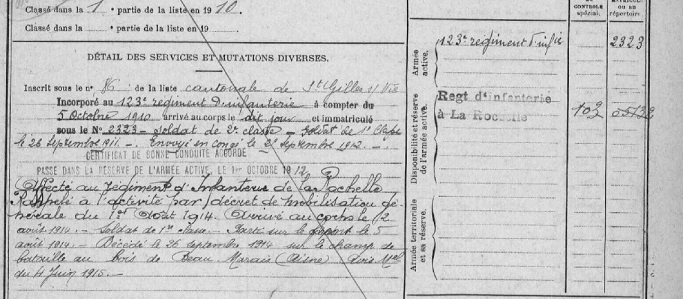 Classé dans la 1 e partie de la liste en 1910.
Classé dans la partie de la liste en 19
DÉTAIL DES SERVICES ET MUTATIONS DIVERSES.
Inscrit sous le n° de la liste cantonale de St Gilles s/ Vie
Incorporé au 123e régiment d'infanterie à compter du
5 Octobre 1910 arrivé au corps le dit jour et immatriculé
sous le No 2323 - soldat de 2e classe - Soldat de 1e Classe
le 26 septembre 1911. Envoyé en congé le 25 septembre 1912. -
CERTIFICAT DE BONNE CONDUITE ACCORDÉ
PASSÉ DANS LA RÉSERVE DE L'ARMÉE ACTIVE, LE 1er OCTOBRE 1912.
Affecté au régiment d'Infanterie de La Rochelle
Rappelé à l'activité par décret de mobilisation gé-
nérale du 1er Août 1914. Arrivé au corps le 2
août 1914. - Soldat de 1re classe. le 5
août 1914. - Décédé le 26 septembre 1914 sur le champ de
bataille au bois de Beau Marais (Aisne) Avis Mel
du 4 Juin 1915. -
CONTROLE spécial.
MATRICULE ou au répertoire
Armée active.
123e régiment d'inf ie
2323
Disponibilité et réserve de l'armée active.
Regt d'infanterie
à La Rochelle
102
Armée territoriale et sa réserve.